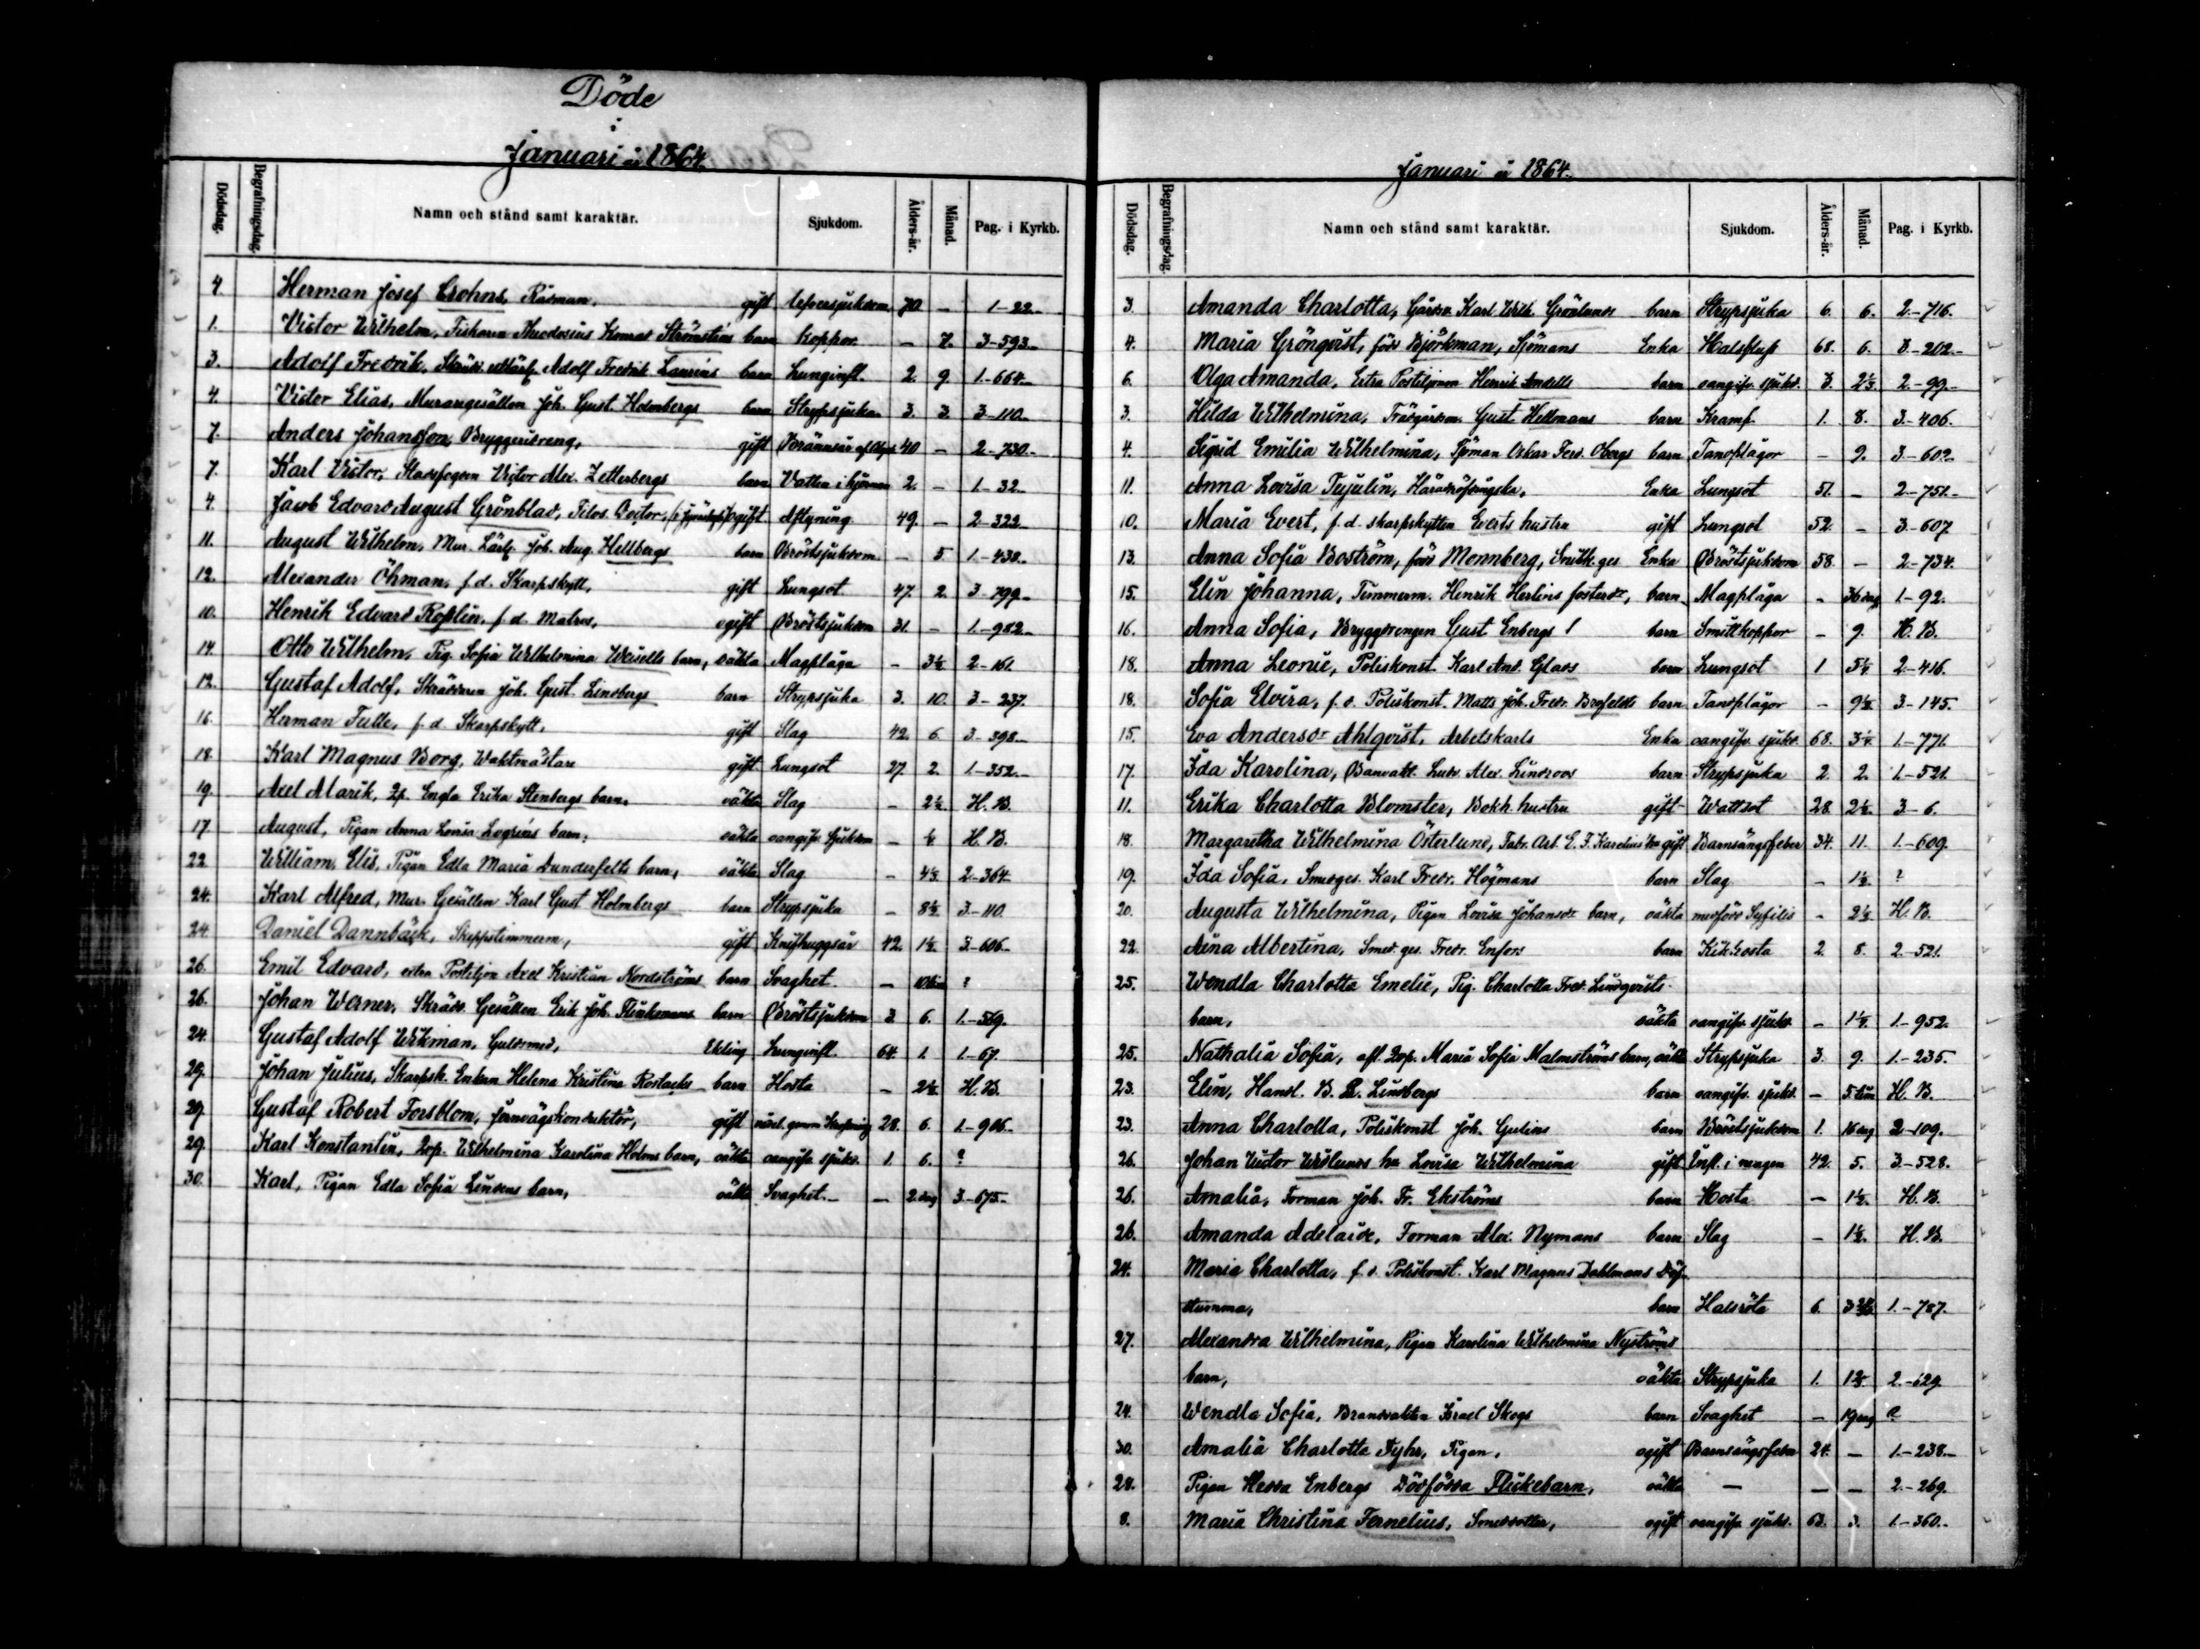 Döde
i
Januari år 1864.
Dödsdag. Begrafningsdag. Namn och stånd samt karaktär. Sjukdom. Ålders-år. Månad. Pag. i Kyrkb.
4 Herman Josef Crohns, Rådman, gift 70 — 1-22
1. Victor Wilhelm, Fiskaren Konrad Ströms barn Koppor — 7. 3-593
3. Adolf Fredrik, Adolf Fredrik barn Lunginfl. 2. 9. 1-664
4. Victor Elias, Muraregesällen Joh. Gust. Holmbergs barn Strypsjuka 3. 3. 3-110.
7. Anders Johansson, Bryggeridreng, gift Brännsår af 40 — 2-730
7. Karl Victor, Stadsfogden Victor Alex. Zetterbergs barn Vatten i hjernan 2. — 1-32
4. Jacob Edvard August Grönblad, Filos. Doctor, ogift Aftyning 49. — 2-322
11. August Wilhelm, Mur. Lärl. Joh. Aug. Hellbergs barn Bröstsjukdom — 5 1-438
12. Alexander Öhman, f.d. Skarpskytt, gift Lungsot 47 2. 3-799
10. Henrik Edvard Roslin, f.d. Matros, ogift Bröstsjukdom 31. — 1-982
14. Otto Wilhelm, Pig. Sofia Wilhelmina Weisells barn, oäkta Magplåga — 3½ 2-161
12. Gustaf Adolf, Skräddaren Joh. Gust. Lindbergs barn Strypsjuka 3. 10. 3-237.
16. Herman Tulle, f.d. Skarpskytt, gift Slag 42. 6. 3-398
18. Karl Magnus Borg, Waktmästare gift Lungsot 27 2. 1-352
19. Axel Marik, Engla Erika Stenbergs barn, oäkta Slag — 2½ H.B.
17. August, Pigan Anna Lovisa Lagréns barn, oäkta oangifv. sjukdom — H.B.
22. William Elis, Pigan Edla Maria Dunderfelts barn, oäkta Slag — 4½ 2-364
24. Karl Alfred, Mur. Gesällen Karl Gust. Holmbergs barn Strypsjuka — 8½ 3-110.
24. Daniel Dannbäck, Skeppstimmerm, gift Knifhuggsår 42. 1½ 3-606
26. Emil Edvard, extra Postiljon Axel Kristian Nordströms barn Svaghet — ?
26. Johan Werner, Skrädd. Gesällen Erik Joh. Flinkmans barn Bröstsjukdom 3. 6. 1-569.
24. Gustaf Adolf Wikman, Guldsmed, Enkling Lunginfl. 64. 1. 1-67.
29. Johan Julius, Skarpsk. Enkan Helena Kristina barn Hosta — 2½ H.B.
27. Gustaf Robert Forsblom, Jernvägskonduktör, gift 28. 6. 1-916
29. Karl Konstantin, Wilhelmina Karolina Holms barn, oäkta oangifv. sjukd. 1. 6. ?
30. Karl, Pigan Edla Sofia Lindens barn, oäkta Svaghet — 2 dag 3-675
Januari år 1864.
Dödsdag. Begrafningsdag. Namn och stånd samt karaktär. Sjukdom. Ålders-år. Månad. Pag. i Kyrkb.
3. Amanda Charlotta, Gårdsn. Karl Wilh. Grönlunds barn Strypsjuka 6. 6. 2-716.
4. Maria Grönqvist, född Björkman, Sjömans Enka Halsfluss 68. 6. 3-202
6. Olga Amanda, Extra Postiljonen Henrik barn oangifv. sjukd. 3. 2⅓ 2-99.
3. Hilda Wilhelmina, Trädgårdsm. Gust. Hellmans barn Kramp 1. 8. 3-406.
4. Sigrid Emilia Wilhelmina, Sjöman Oskar Ferd. Obergs barn Tandplågor — 9. 3-602
11. Anna Lovisa Tujulin, Häradshöfdingska, Enka Lungsot 51. — 2-751
10. Maria Evert, f.d. skarpskytten Everts hustru gift Lungsot 52. — 3-607.
13. Anna Sofia Boström, född Monnberg, Smidk.ges Enka Bröstsjukdom 58. — 2-734.
15. Elin Johanna, Timmerm. Henrik Herlins fosterd:r, barn Magplåga — dag 1-92.
16. Anna Sofia, Bryggdrengen Gust Enbergs barn Smittkoppor — 9. H.B.
18. Anna Leonie, Poliskonst. Karl And. Glads barn Lungsot 1 5½ 2-416.
18. Sofia Elvira, f.d. Poliskonst. Matts Joh. Fredr. Brofeldts barn Tandplågor — 9½ 3-145.
15. Eva Andersd:r Ahlqvist, Arbetskarls Enka oangifv. sjukd. 68. 3½ 1-771.
17. Ida Karolina, Banvakt. Ludv. Alex. Lindroos barn Strypsjuka 2. 2. 1-521.
11. Erika Charlotta Blomster, Bokh. hustru gift Wattsot 28. 2½ 3-6.
18. Margaretha Wilhelmina Österlund, Fabr. Arb. E. F. Karelius' hu gift Barnsängsfeber 34. 11. 1-609.
19. Ida Sofia, Smedges. Karl Fredr. Högmans barn Slag — 1½ ?
20. Augusta Wilhelmina, Pigan Lovisa Johansd:r barn, oäkta medfödd Syfilis — 2½ H.B.
22. Aina Albertina, Smed.ges. Fredr. Enfors barn Kikhosta 2. 8. 2-521.
25. Wendla Charlotta Emelie, Pig. Charlotta Fred. Lindqvists
barn, oäkta oangifv. sjukd. — 1½ 1-952.
25. Nathalia Sofia, afl. Maria Sofia Malmströms barn, oäkta Strypsjuka 3. 9. 1-235
23. Elin, Handl. B. R. Lindbergs barn oangifv. sjukd. — 5 tim H.B.
23. Anna Charlotta, Poliskonst Joh. Gulins barn Bröstsjukdom 1. 16 dag 2-109.
26. Johan Victor Widlunds hu Lovisa Wilhelmina gift Infl. i magen 42. 5. 3-528.
26. Amalia, Forman Joh. Fr. Ekströms barn Hosta — 1½ H.B.
26. Amanda Adelaide, Forman Alex. Nymans barn Slag — 1½ H.B.
24. Maria Charlotta, f.d. Poliskonst. Karl Magnus Dahlmans Döf-
stumma, barn Halsröta 6. 1-787.
27. Alexandra Wilhelmina, Pigan Karolina Wilhelmina Nyströms
barn, oäkta Strypsjuka 1. 2-629.
24. Wendla Sofia, Brandvakten Israel Skogs barn Svaghet — 19 dag ?
30. Amalia Charlotta Fyhr, Pigan, ogift Barnsängsfeber 24. — 1-238
28. Pigan Hedda Enbergs Dödfödda Flickebarn, oäkta — — — 2-269.
8. Maria Christina Fernelius, Smedsdotter, ogift oangifv. sjukd. 63. 3. 1-360